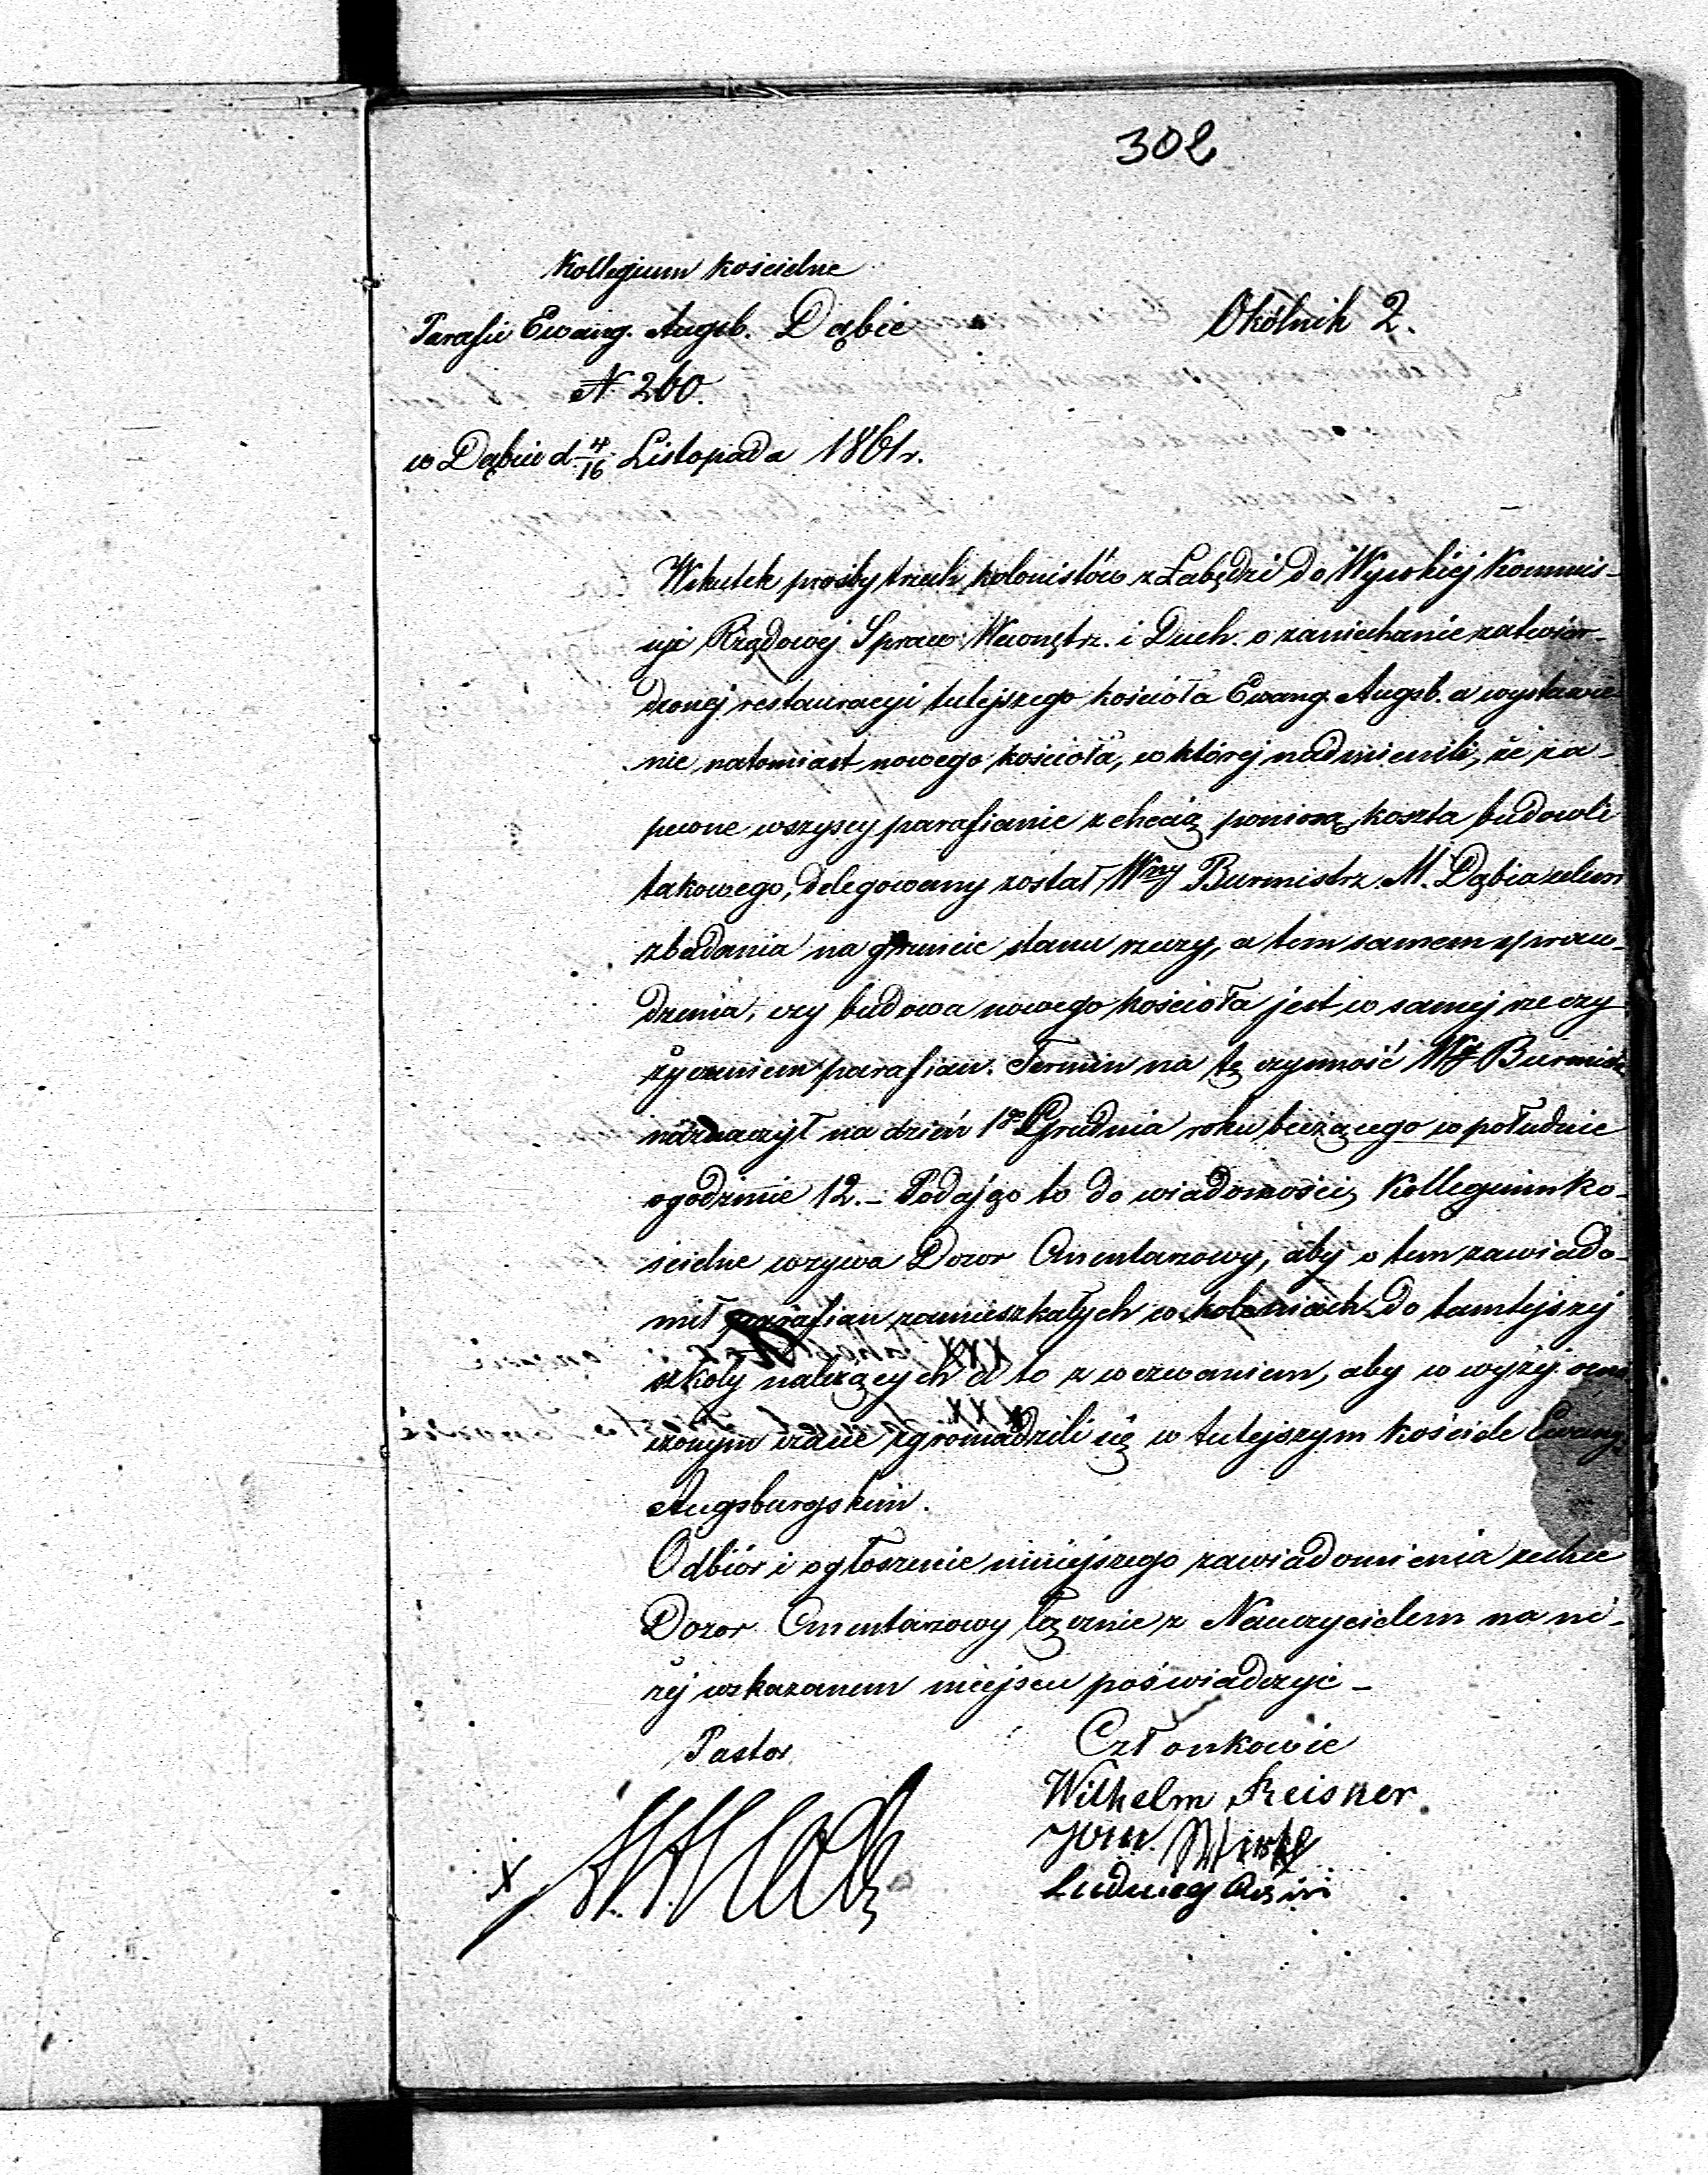 302
Kollegium Kościelne
Parafii Ewang. Augsb. Dąbie
Okólnik 2.
N 260.
w Dąbiu d 4/16 Listopada 1861 r.
Wskutek prośby trzech kolonistów z Łabędzi do Wysokiej Kommis-
syi Rządowej Spraw Wewnętrz. i Duch. o zaniechanie zatwier-
dzonej restauracyi tutejszego kościoła Ewang. Augsb. a wystawie
nie natomiast nowego kościoła, w której nadmienili, że za-
pewne wszyscy parafianie z chęcią poniosą koszta budowli
takowego, delegowany został Wny Burmistrz M. Dąbia celem
zbadania na gruncie stanu rzeczy, a tem samem spraw-
dzenia, czy budowa nowego kościoła jest w samej rzeczy
życzeniem parafian. Termin na tę czynność Wny Burmistrz
naznaczył na dzień 1go Grudnia roku bieżącego w południe
o godzinie 12. – Podając to do wiadomości, Kollegium Ko-
ścielne wzywa Dozor Cmentarzowy, aby o tem zawiado-
mił parafian zamieszkałych w koloniach do tamtejszej
szkoły należących a to z wezwaniem, aby w wyżej ozna
czonym czasie zgromadzili się w tutejszym kościele Ewang.
Augsburgskim.
Odbiór i ogłoszenie niniejszego zawiadomienia zechce
Dozor Cmentarzowy łącznie z Nauczycielem na ni-
żej wskazanem miejscu poświadczyć –
Pastor
Członkowie
Wilhelm
Ludwig